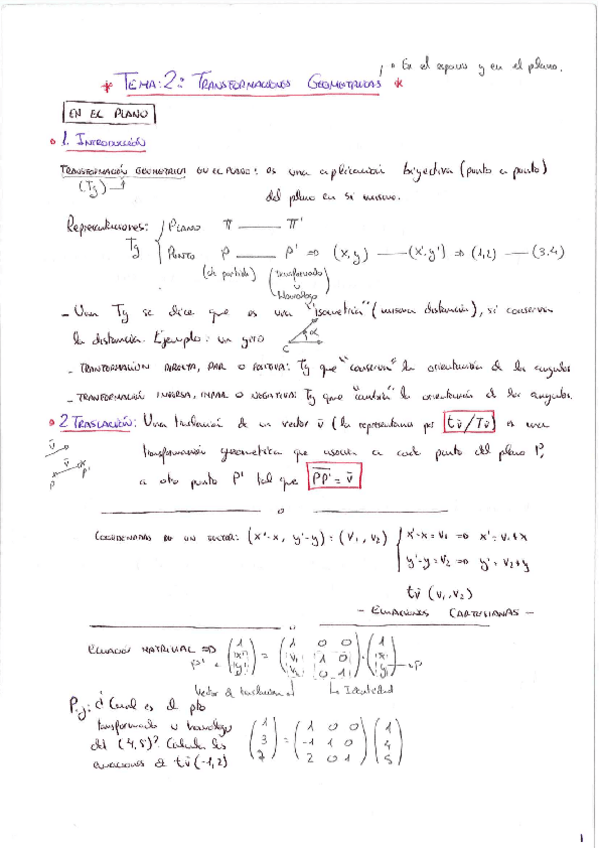 * En el espacio y en el plano.
* TEMA: 2: TRANSFORMACIONES GEOMETRICAS *
EN EL PLANO
1. INTRODUCCIÓN
TRANSFORMACIÓN GEOMETRICA EN EL PLANO: es una aplicación biyectiva (punto a punto)
(Tg) del plano en si mismo.
Representaciones: PLANO π — π'
Tg PUNTO P — P' => (x,y) — (x',y') => (1,2) — (3,4)
(de partida) (transformado u Homologo
- Una Tg se dice que es una "isometría" (misma distancia), si conserva
la distancia. Ejemplo: un giro α
C
- TRANFORMACIÓN DIRECTA, PAR O POSITIVA: Tg que "conserva" la orientación de los angulos
- TRANFORMACIÓN INVERSA, IMPAR O NEGATIVA: Tg que "cambia" la orientación de los angulos.
2 TRASLACIÓN: Una traslación de un vector v̄ (la representamos por tv̄/Tv̄) es una
transformación geometrica que asocia a cada punto del plano P,
a otro punto P' tal que PP' = v̄
v̄
v̄ P'
P
COORDENADAS DE UN VECTOR: (x'-x, y'-y) = (V₁, V₂) x'-x = V₁ => x' = V₁+x
y'-y = V₂ => y' = V₂+y
tv̄ (V₁, V₂)
- ECUACIONES CARTESIANAS -
ECUACIÓN MATRICIAL => (1 (1 0 0) (1
P' x' = V₁ 1 0 · x P
y') V₂ 0 1) y)
Vector de traslación La Identidad
P.ej: ¿Cual es el pto
transformado u homologo (1 (1 0 0) (1
del (4,5)? Calcula las 3 = -1 1 0 4
ecuaciones de tv̄ (-1,2) 7) 2 0 1) 5)
1